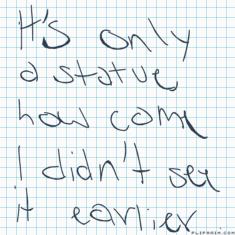 It's only
a statue
how come
I didn't see
it earlier
FLIPANIM.COM